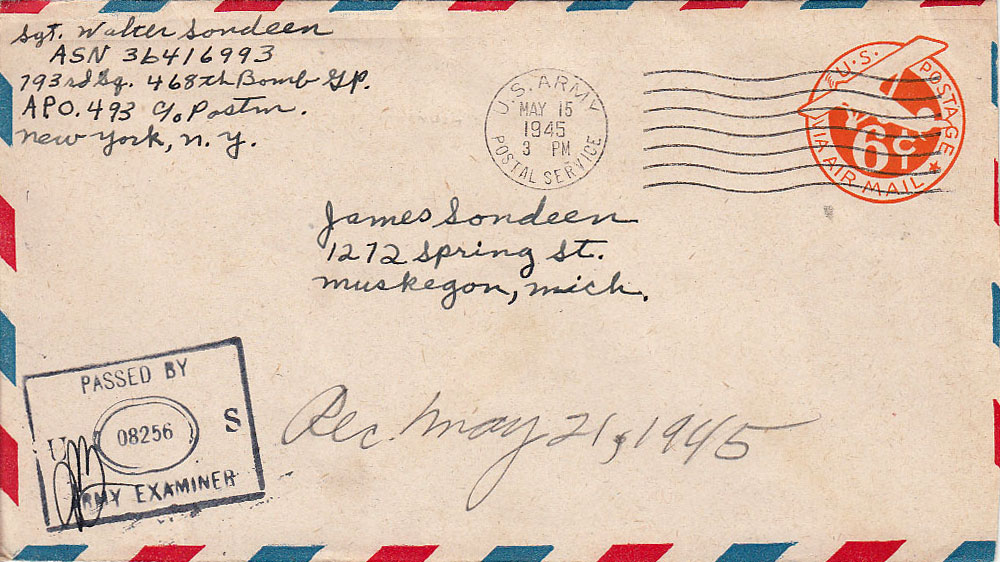 Sgt. Walter Sondeen
ASN 36416993
793rd Sq. 468th Bomb GP.
APO. 493 c/o Postm.
New York, N. Y.
U.S. ARMY
MAY 15
1945
3 PM
POSTAL SERVICE
U.S. POSTAGE
6¢
VIA AIR MAIL
James Sondeen
1272 Spring St.
Muskegon, Mich.
PASSED BY
U 08256 S
ARMY EXAMINER
Rec. May 21, 1945